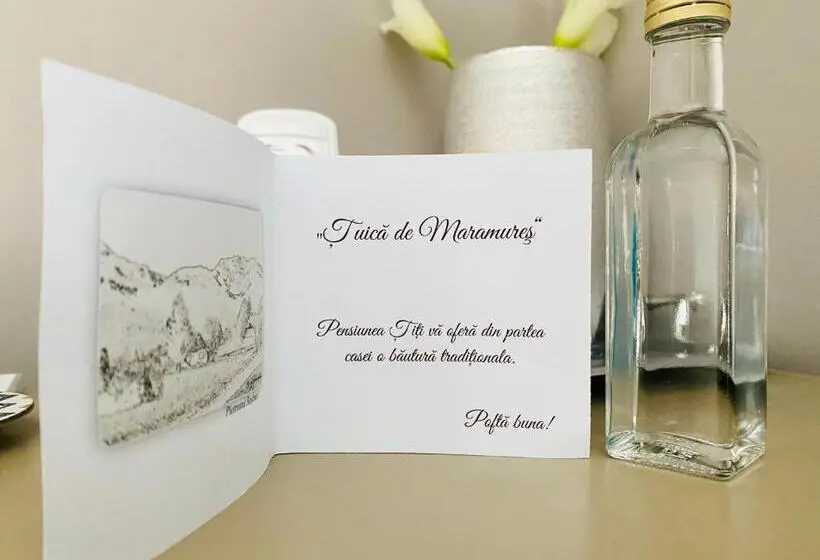 „Țuică de Maramureș“
Pensiunea Țiți vă oferă din partea
casei o băutură tradiționala.
Poftă buna!
Pietrosul Rodnei